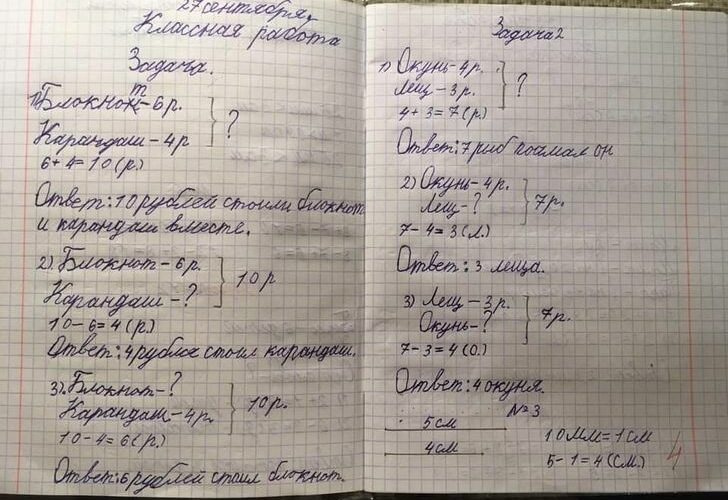 27 сентября.
Классная работа
Задача.
1) Блокнот - 6 р.
Карандаш - 4 р
?
6 + 4 = 10 (р.)
Ответ: 10 рублей стоили блокнот
и карандаш вместе.
2). Блокнот - 6 р.
Карандаш - ?
10 р
10 - 6 = 4 (р.)
Ответ: 4 рубля стоил карандаш.
3). Блокнот - ?
Карандаш - 4 р.
10 р.
10 - 4 = 6 (р.)
Ответ: 6 рублей стоил блокнот.
Задача 2
1) Окунь - 4 р.
Лещ - 3 р.
?
4 + 3 = 7 (р.)
Ответ: 7 рыб поймал он
2) Окунь - 4 р.
Лещ - ?
7 р.
7 - 4 = 3 (л.)
Ответ: 3 леща.
3) Лещ - 3 р.
Окунь - ?
7 р.
7 - 3 = 4 (о.)
Ответ: 4 окуня.
№ 3
5 см
4 см
10 мм = 1 см
5 - 1 = 4 (см.)
4